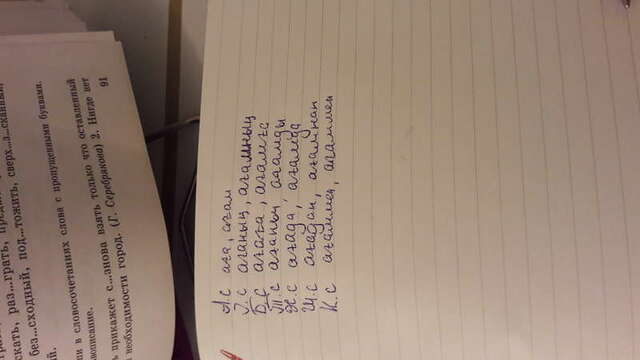 ...скать, раз...грать, пред...
без...сходный, под...тожить, сверх...з...сканный,
...и в словосочетаниях слова с пропущенными буквами.
прикажет с...знова взять только что оставленный
необходимости город. (Г. Серебрякова) 2. Нигде нет
91
А.с аға, ағам
І.с ағаның, ағамның
Б.с ағаға, ағамға
Т.с ағаның ағамды
Ж.с ағада, ағамда
Ш.с ағадан, ағамнан
К.с ағаммен, ағаммен